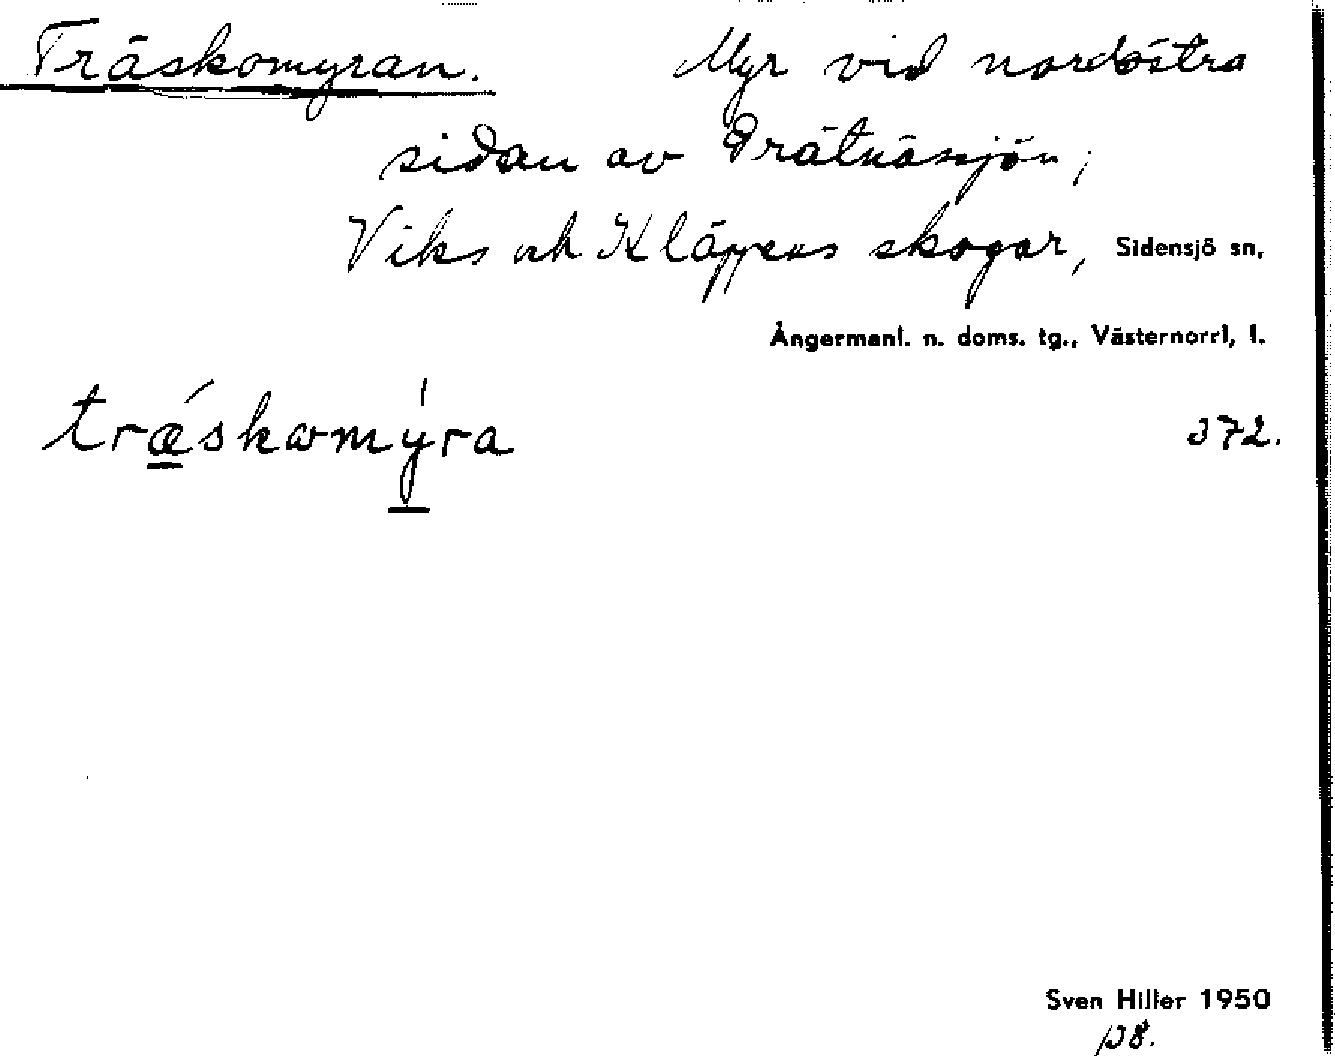 Träskomyran. Myr vid nordöstra
sidan av Trätnässjön,
Viks och Kläppens skogar, Sidensjö sn,
Ångermanl. n. doms. tg., Västernorrl, l.
trǽ̲skomý̲ra 372.
Sven Hiller 1950